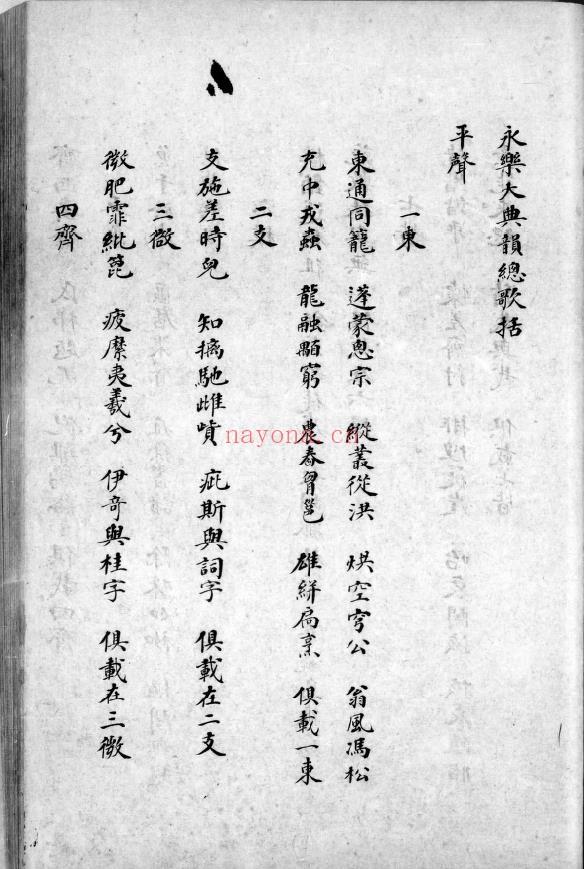 永樂大典韻總歌括
平聲
一東
東通同籠 蓬蒙悤宗 縱叢從洪 烘空穹公 翁風馮松
充中戎蟲 龍融顒窮 農舂胷邕 雄絣扃烹 俱載一東
二支
支施差時兒 知摛馳雌 疵斯與詞字 俱載在二支
三微
微肥霏紕 疲縻夷羲兮 伊奇與桂字 俱載在三微
四齊
nayona.cn